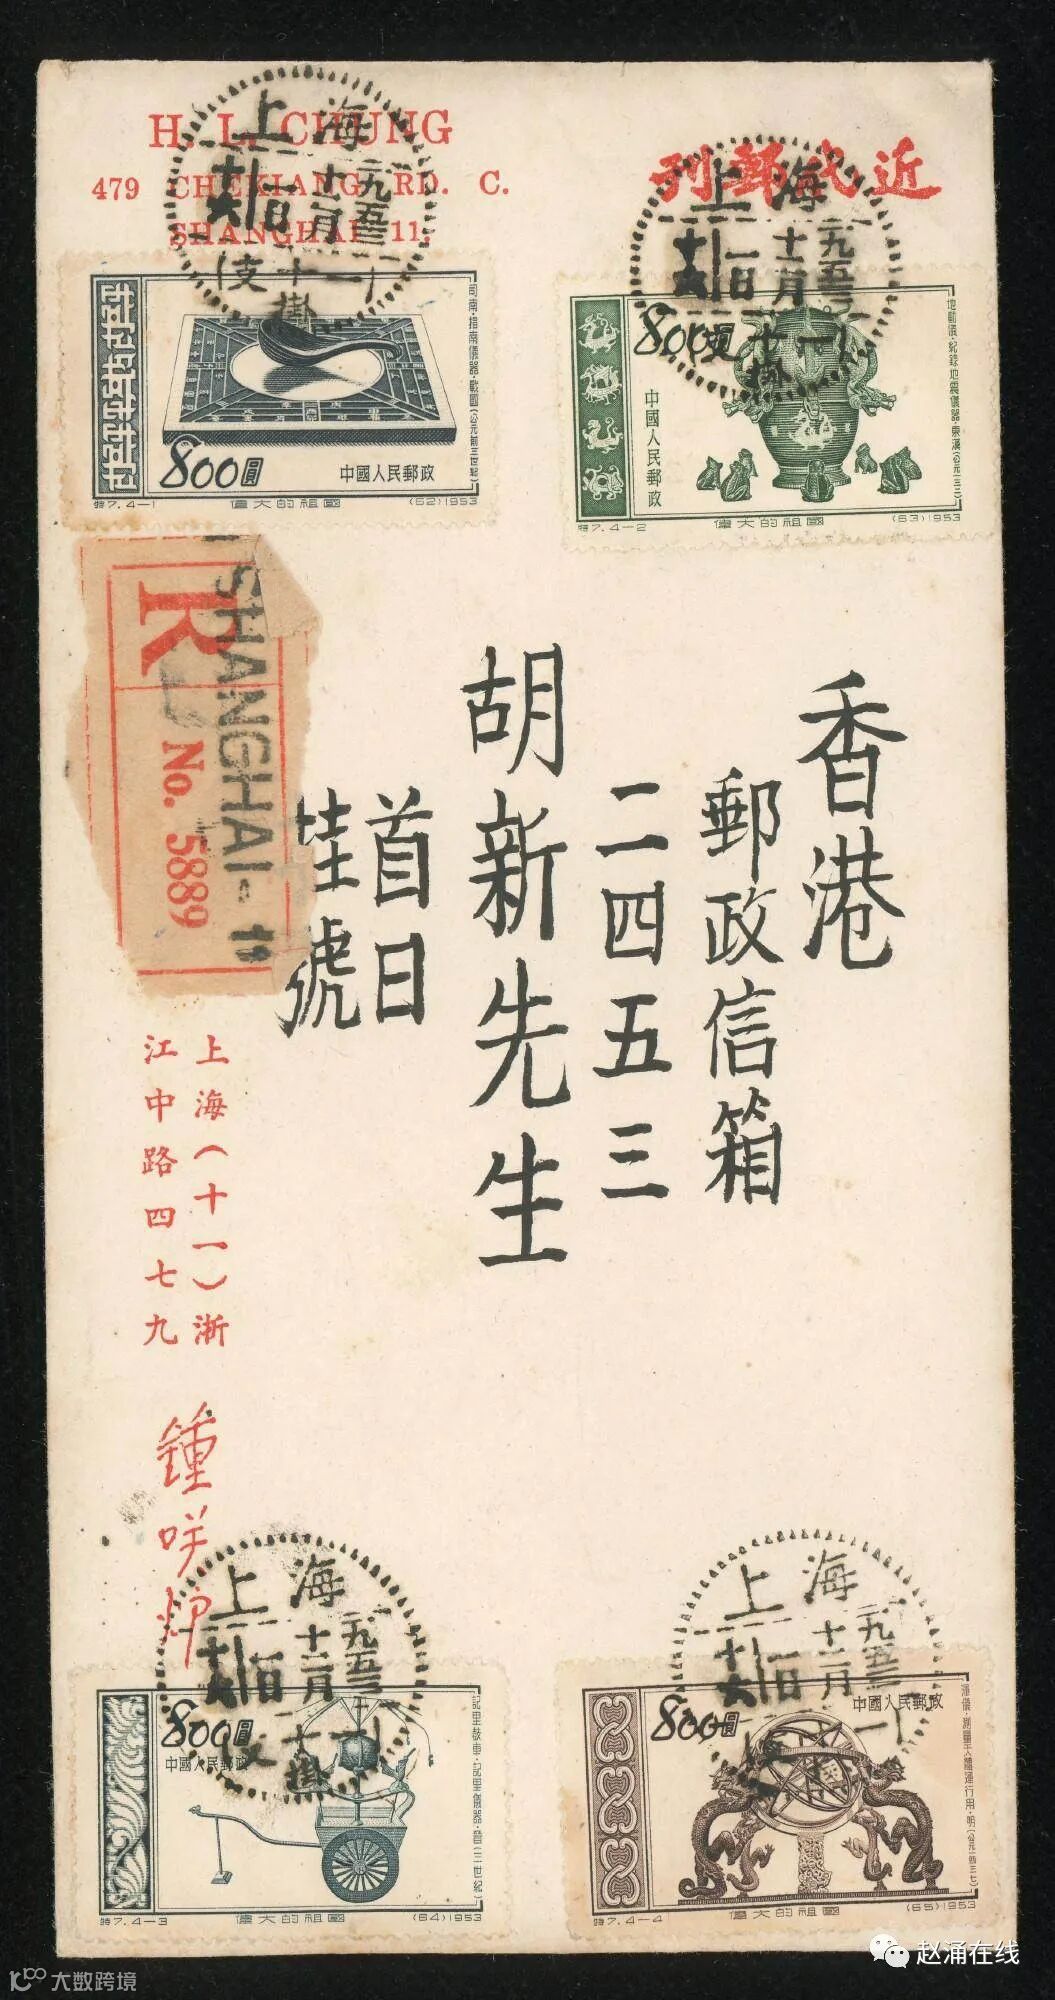 H. L. CHUNG
479 CHEKIANG RD. C.
SHANGHAI 11.
近代郵刊
上海
一九五三
十二月
一日
十一支
掛
上海
一九五三
十二月
一日
司南·指南儀器·戰國(公元前三世紀)
800圓
中國人民郵政
特7.4-1
偉大的祖國
(62)1953
地動儀·紀錄地震儀器·東漢(公元一三二)
800圓
中國人民郵政
特7.4-2
偉大的祖國
(63)1953
R
No. 5889
SHANGHAI-
香港
郵政信箱
二四五三
胡新先生
首日
掛號
上海(十一)浙
江中路四七九
鍾咲炉
上海
一九五三
十二月
一日
上海
一九五三
十二月
一日
800圓
中國人民郵政
記里鼓車·記里儀器·晉(三世紀)
特7.4-3
偉大的祖國
(64)1953
800圓
中國人民郵政
渾儀·測量天體運行用·明(公元一四三七)
特7.4-4
偉大的祖國
(65)1953
赵涌在线
大数跨境